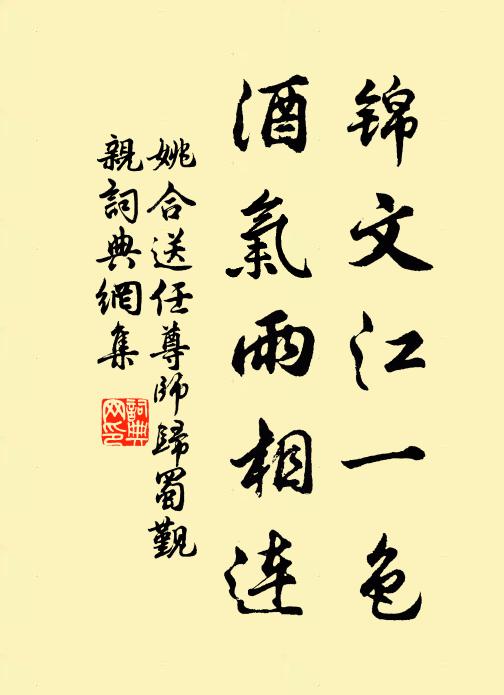 锦文江一色
酒氣雨相連
姚合送任尊師歸蜀覲
親詞典網集
詞典
网印